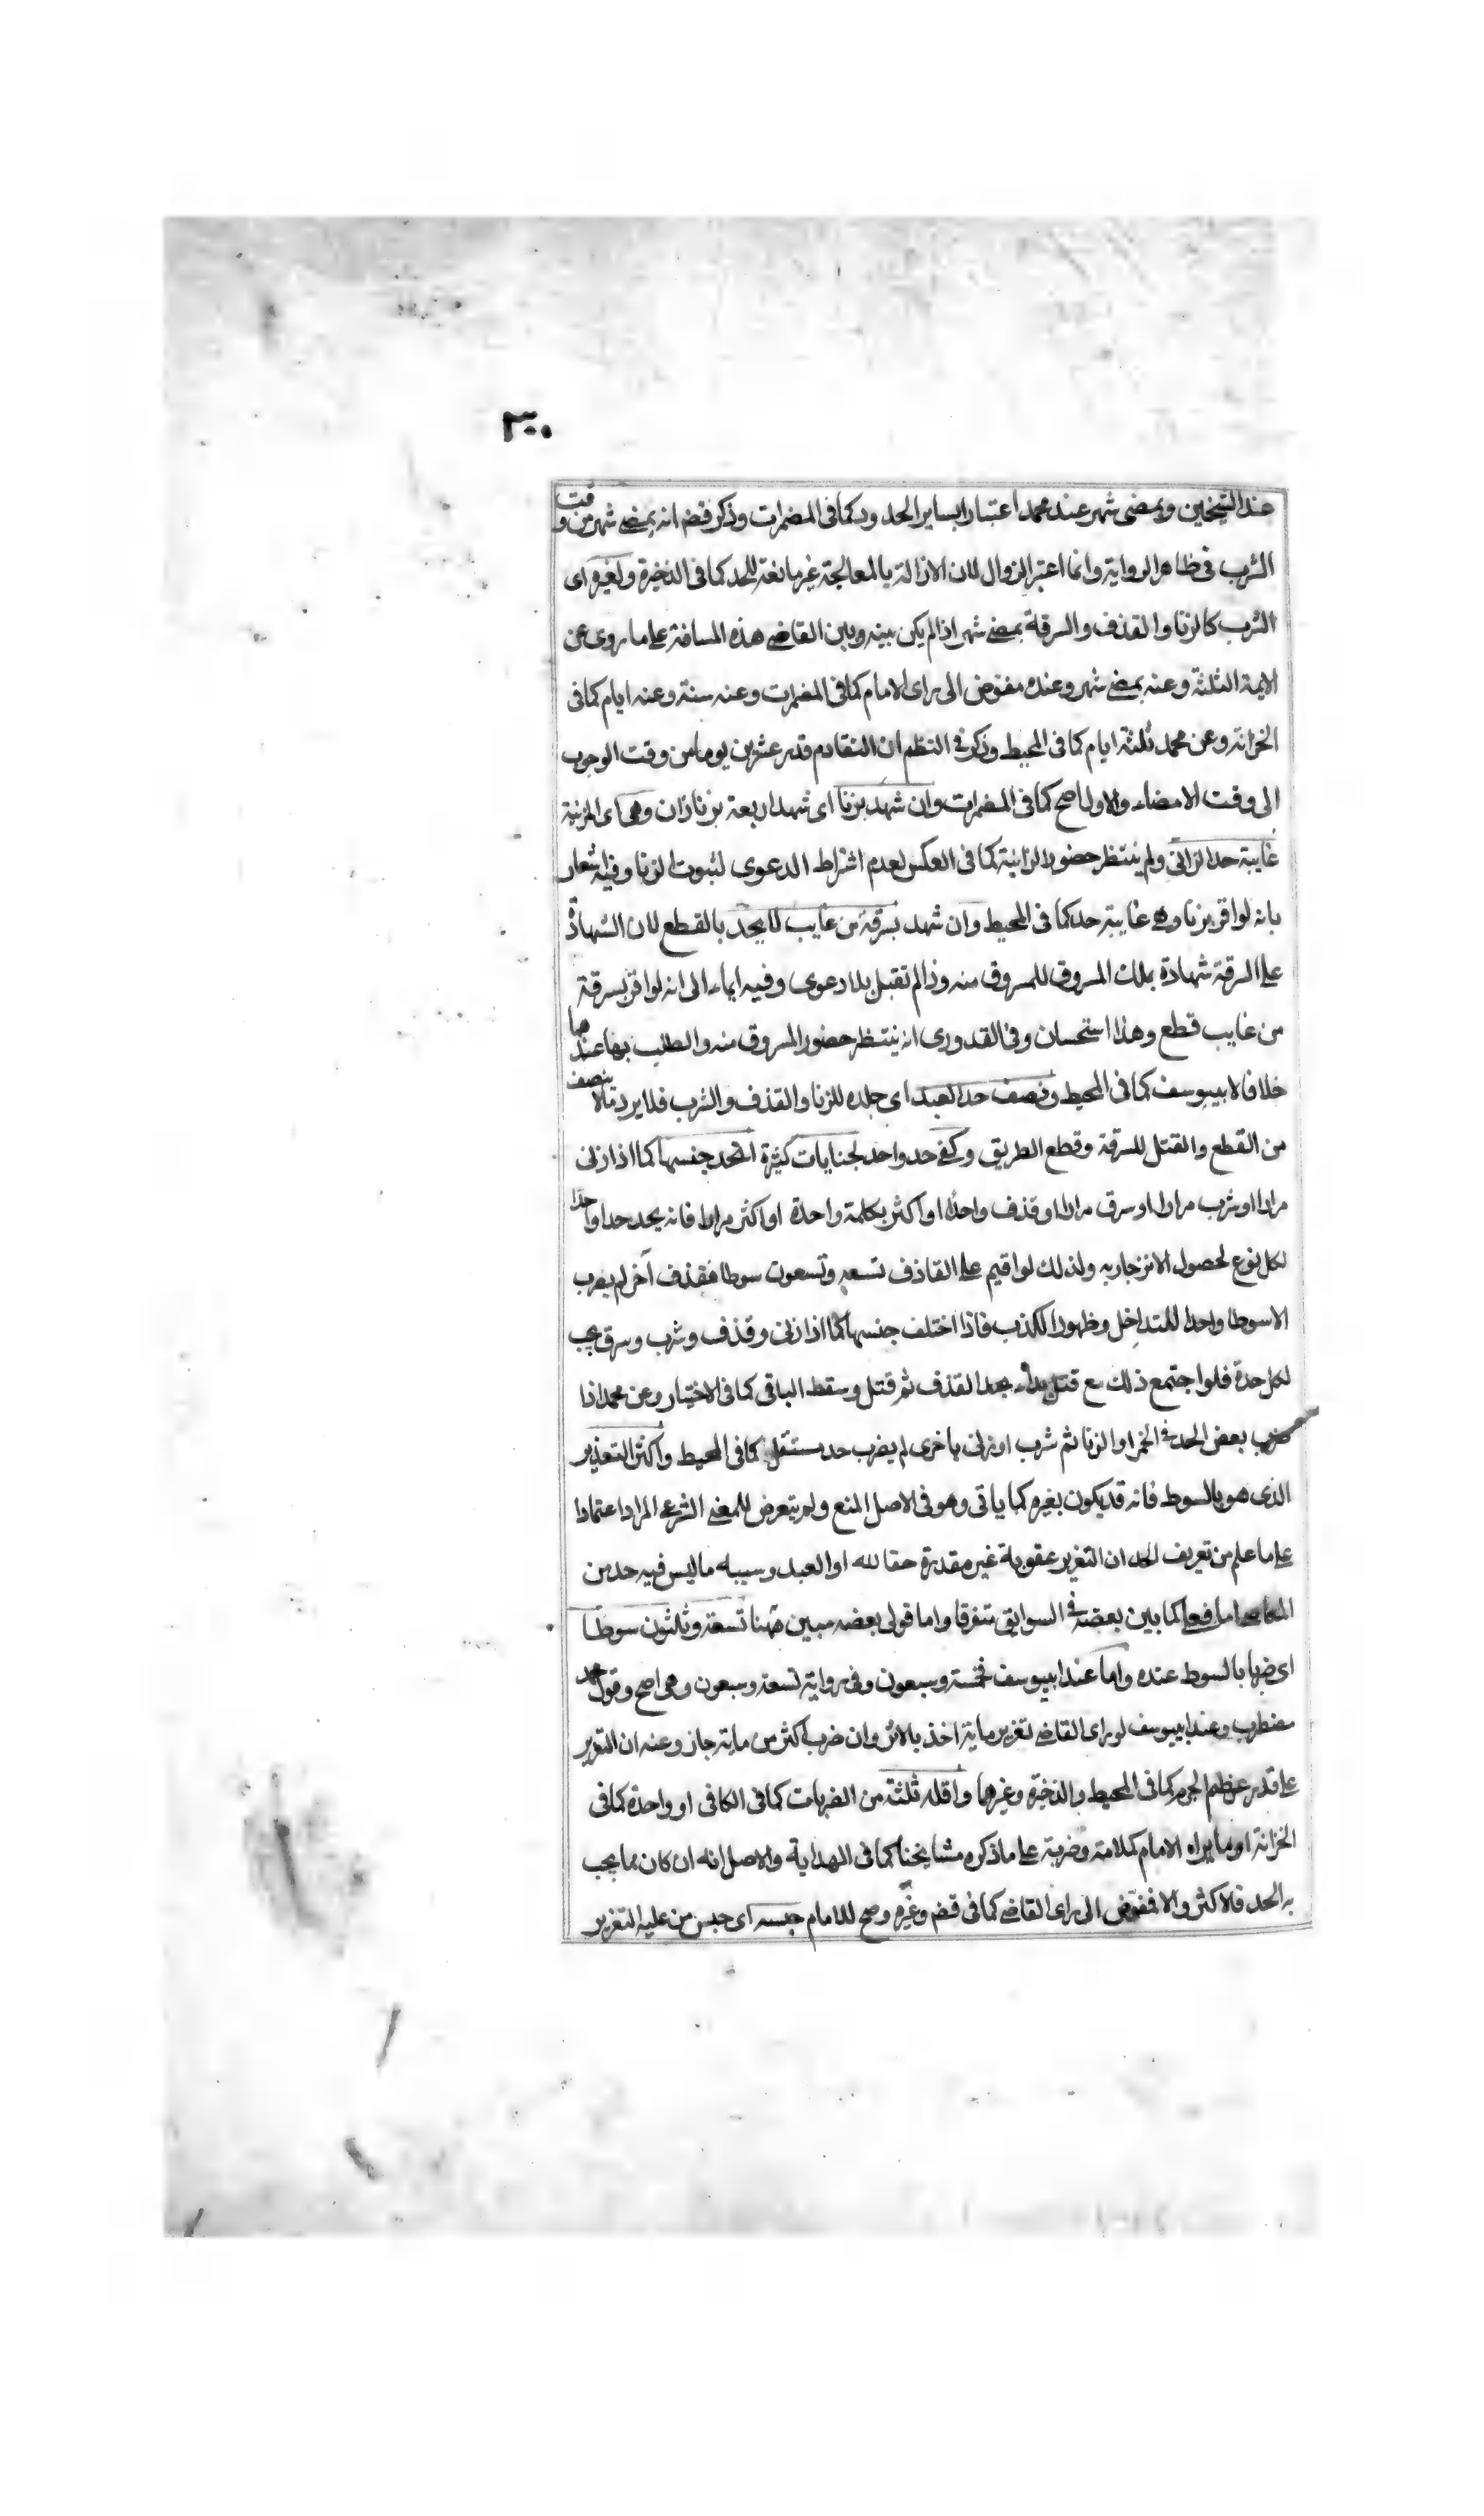 ٣٠٠
عند الشيخين وبمضى شهر عند محمد اعتبارا بساير الحدود كما فى المضمرات وذكر قضم انه بمضى شهر من وقت
الشرب فى ظاهر الرواية وانما اعتبر الزوال لان الازالة بالمعالجة غير مانعة للحد كما فى الذخيرة ولغيره اى
الشرب كالزنا والقذف والسرقة بمضى شهر اذا لم يكن بينه وبين القاضى هذه المسافة على ما روى عن
الايمة الثلثة وعنه بمضى شهر وعنده مفوض الى راى الامام كما فى المضمرات وعنه سنة وعنه ايام كما فى
الخزانة وعن محمد ثلثة ايام كما فى المحيط وذكر فى النظم ان التقادم قدر عشرين يوما من وقت الوجوب
الى وقت الامضاء والاول اصح كما فى المضمرات وان شهد بزنا اى شهد اربعة بزنا زان وهى اى المزنية
غايبة حد الزانى ولم ينتظر حضور الزانية كما فى العكس لعدم اشتراط الدعوى لثبوت الزنا وفيه اشعار
بانه لو اقر بزنا وهى غايبة حد كما فى المحيط وان شهد بسرقة من غايب لا يحد بالقطع لان الشهادة
على السرقة شهادة بملك المسروق للمسروق منه وذا لم تقبل بلا دعوى وفيه ايماء الى انه لو اقر بسرقة
من غايب قطع وهذا استحسان وفى القدورى انه ينتظر حضور المسروق منه والطلب بها عندهما
خلافا لابييوسف كما فى المحيط ونصف حد العبد اى جلده للزنا والقذف والشرب فلا يرد ما لا ينصف
من القطع والقتل للسرقة وقطع الطريق وكفى حد واحد لجنايات كثيرة اتحد جنسها كما اذا زنى
مرارا او شرب مرارا او سرق مرارا او قذف واحدا او اكثر بكلمة واحدة او اكثر مرارا فانه يحد حدا واحدا
لكل نوع لحصول الانزجار به ولذلك لو اقيم على القاذف تسعة وتسعون سوطا فقذف آخر لم يضرب
الا سوطا واحدا للتداخل وظهور الكذب فاذا اختلف جنسها كما اذا زنى وقذف وشرب وسرق يجب
لكل حدة فلو اجتمع ذلك مع قتل بداء بحد القذف ثم قتل وسقط الباقى كما فى الاختيار وعن محمد اذا
ضرب بعض الحد فى الخمر او الزنا ثم شرب او زنى باخرى لم يضرب حد مستقل كما فى المحيط واكثر التعذير
الذى هو بالسوط فانه قد يكون بغيره كما ياتى وهو فى الاصل المنع ولم يتعرض للمعنى الشرعى المراد اعتمادا
على ما علم من تعريف الحد ان التعزير عقوبة غير مقدرة حقا لله او العبد وسببه ما ليس فيه حد من
المعاصى اما فعلى كما بين بعضه فى السوابق متفرقا واما قولى بعضه مبين ههنا تسعة وثلثون سوطا
اى ضربا بالسوط عنده واما عند ابييوسف فخمسة وسبعون وفى رواية تسعة وسبعون وهى اصح وقول محمد
مضطرب وعند ابييوسف لو راى القاضى تعزير ماية اخذ بالاثر وان ضرب اكثر من ماية جاز وعنه ان التعزير
على قدر عظم الجرم كما فى المحيط والذخيرة وغيرهما واقله ثلثة من الضربات كما فى الكافى او واحدة كما فى
الخزانة او ما يراه الامام كملامة وضربة على ما ذكره مشايخنا كما فى الهداية والاصل انه ان كان بما يجب
به الحد فالاكثر والا فمفوض الى راى القاضى كما فى قضم وغيره وصح للامام حبسه اى حبس من عليه التعزير